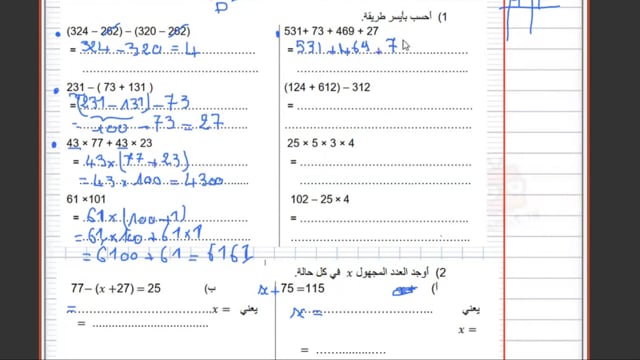 1) أحسب بأيسر طريقة.
(324 – 262) – (320 – 262)
= 324 – 320 = 4
231 – ( 73 + 131 )
= (231 – 131) – 73
= 100 – 73 = 27
43 × 77 + 43 × 23
= 43 × (77 + 23)
= 43 × 100 = 4300
61 ×101
= 61 × (100 + 1)
= 61 × 100 + 61 × 1
= 6100 + 61 = 6161
531+ 73 + 469 + 27
= 531 + 469 + 7
(124 + 612) – 312
=
25 × 5 × 3 × 4
=
=
102 – 25 × 4
=
=
2) أوجد العدد المجهول x في كل حالة.
أ) x + 75 =115
يعني x =
x =
=
ب) 77– (x +27) = 25
يعني x = =
=